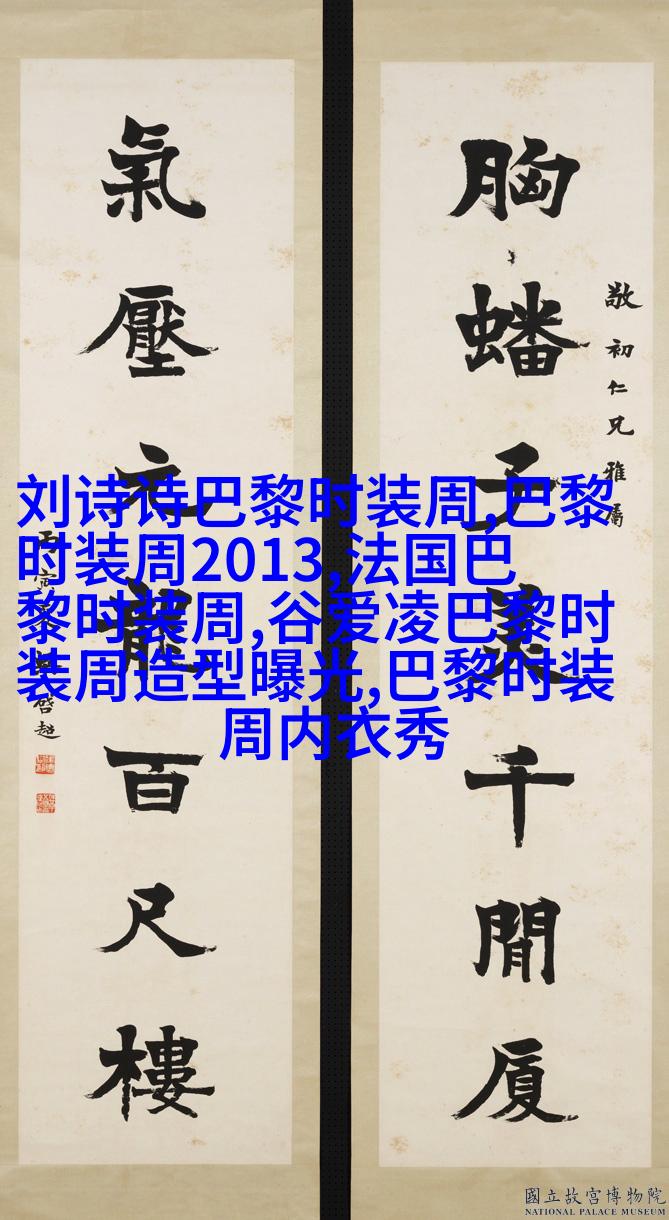 胸蟠子美千間厦
敬初仁兄雅屬
氣壓元龍百尺樓
啓超
刘诗诗巴黎时装周,巴黎
时装周2013,法国巴
黎时装周,谷爱凌巴黎时
装周造型曝光,巴黎时装
周内衣秀
國立故宮博物院
NATIONAL PALACE MUSEUM